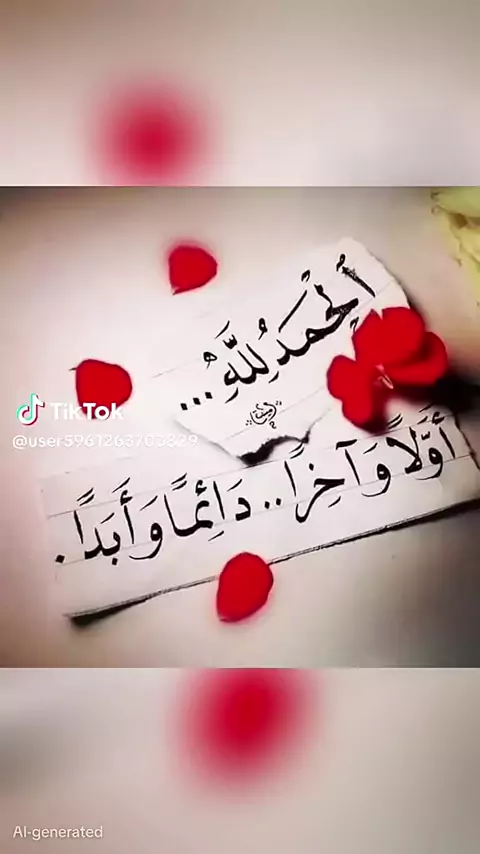 اَلْحَمْدُ لِلَّهِ...
أَوَّلاً وَآخِراً.. دَائِماً وَأَبَداً.
TikTok
@user5961263703829
AI-generated